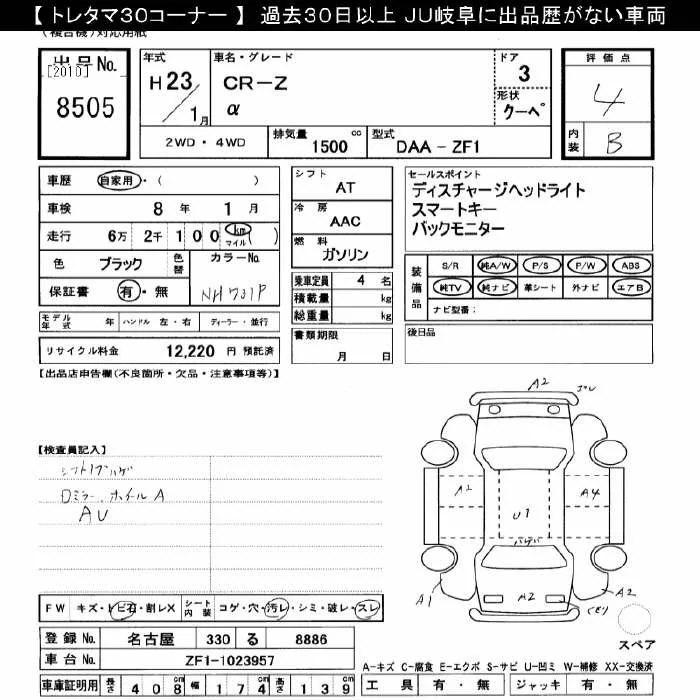 【 トレタマ30コーナー 】 過去30日以上 JU岐阜に出品歴がない車両
(複合機)対応用紙
出品No.
[2010]
8505
年式 H 23 / 1月
車名・グレード
CR-Z
α
ドア 3
形状 クーペ
2WD・4WD
排気量 1500 cc
型式 DAA - ZF1
評価点
4
内装 B
車歴 自家用・( )
車検 8年 1月
走行 6万 2千 1 0 0 km マイル ( )
色 ブラック 色替 カラーNo.
保証書 有・無 NH731P
モデル年式 年 ハンドル 左・右 ディーラー・並行
リサイクル料金 12,220 円 預託済
シフト AT
冷房 AAC
燃料 ガソリン
乗車定員 4 名
積載量 kg
総重量 kg
書類期限
月 日
セールスポイント
ディスチャージヘッドライト
スマートキー
バックモニター
装備品
S/R 純A/W P/S P/W ABS
純TV 純ナビ 革シート 外ナビ エアB
ナビ型番:
後日品
【出品店申告欄(不良箇所・欠品・注意事項等)】
【検査員記入】
シフトノブハゲ
Dミラー、ホイールA
AU
A2
A2
A4
U1
ハゲ
A2
A1
A2
スペア
FW キズ・トビ石・割レX シート内装 コゲ・穴・汚レ・シミ・破レ・スレ
登録No. 名古屋 330 る 8886
車台No. ZF1-1023957
車庫証明用 長さ 408cm 幅 174cm 高さ 139cm
A-キズ C-腐食 E-エクボ S-サビ U-凹ミ W-補修 XX-交換済
工具 有・無 ジャッキ 有・無